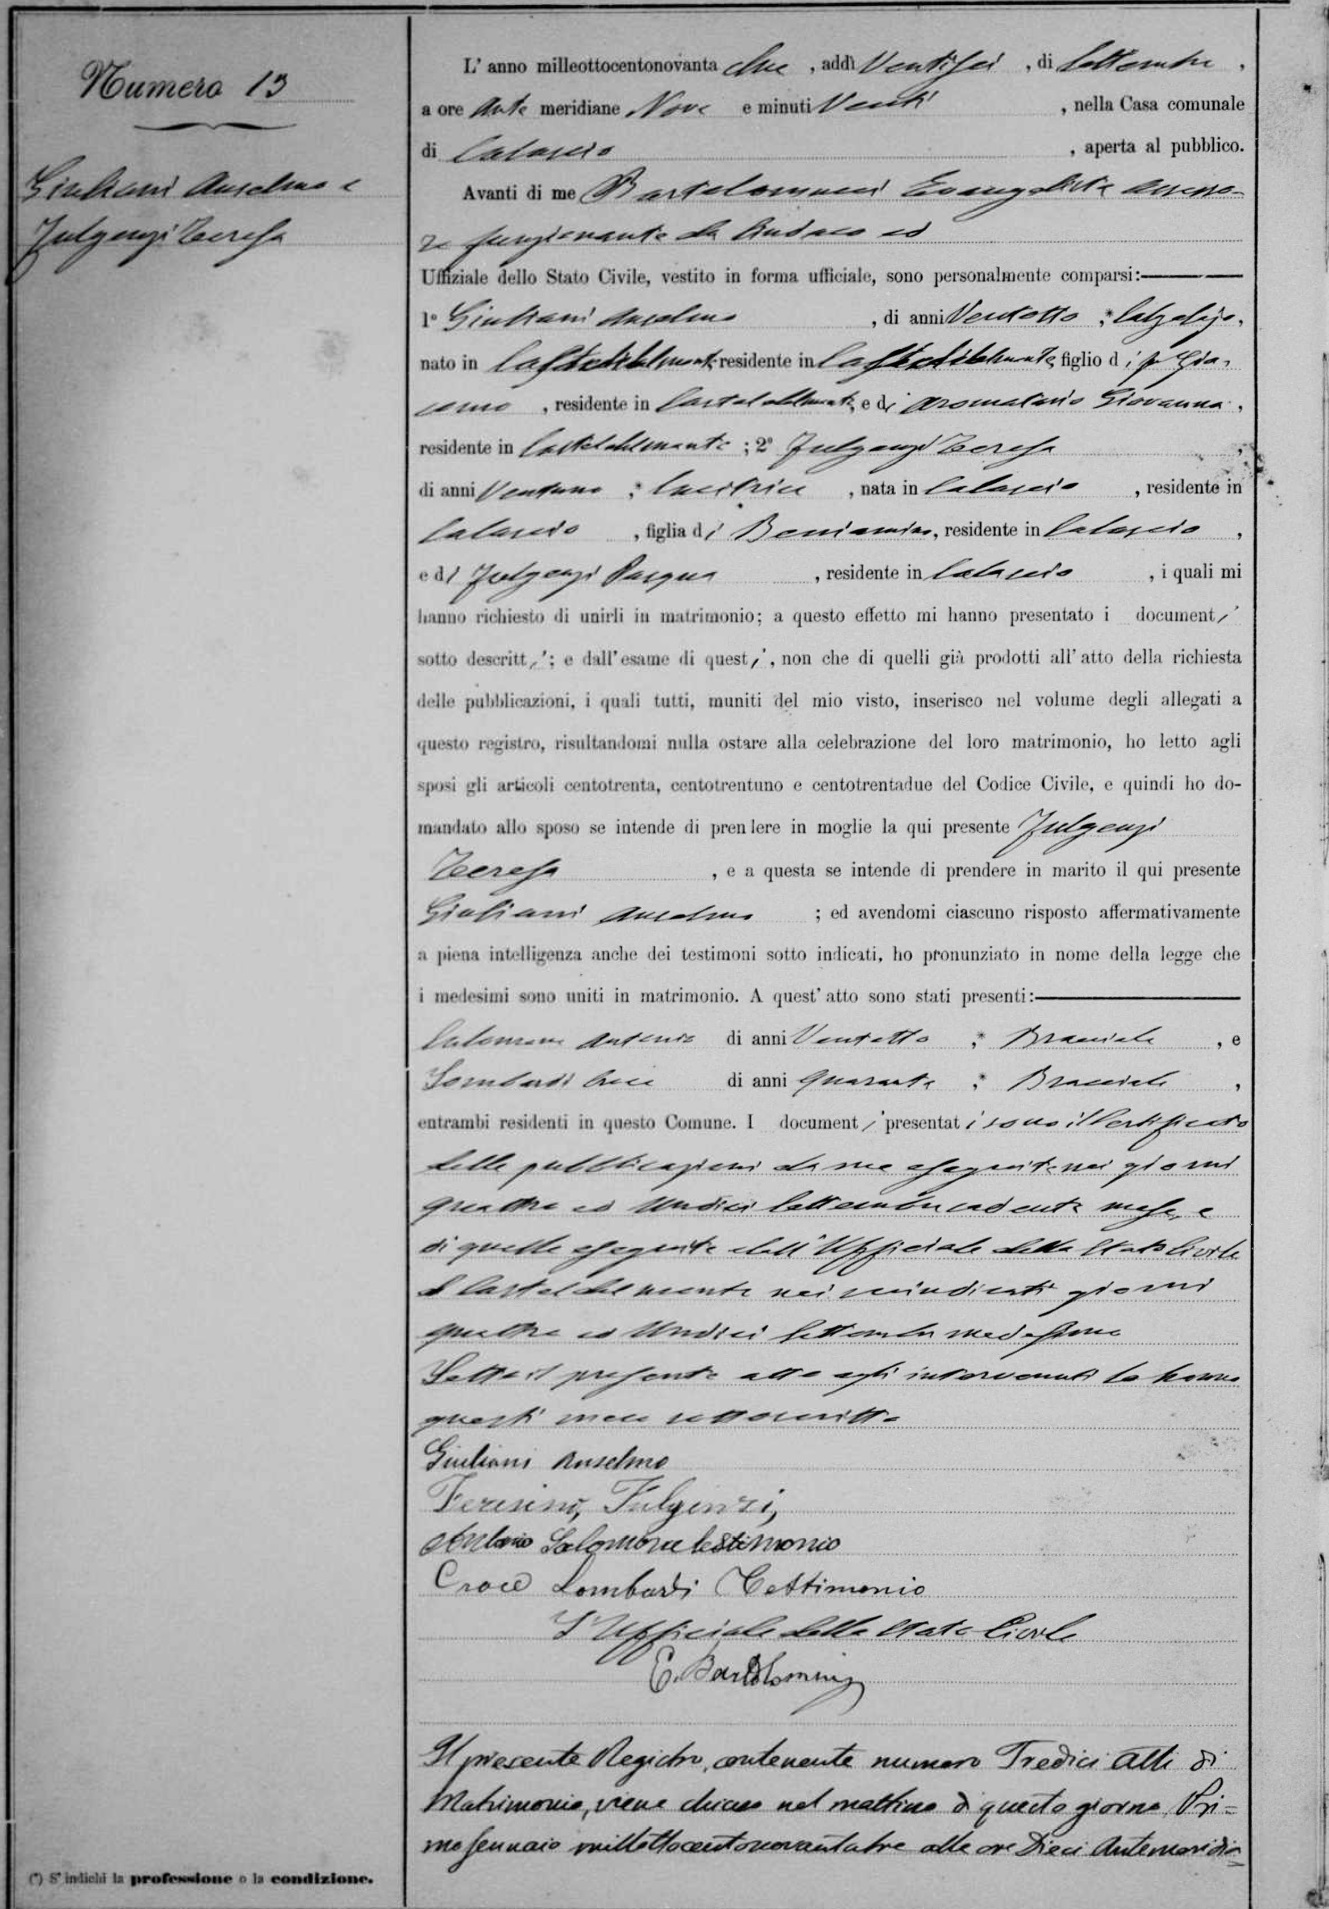 Numero 13
Giuliani Anselmo e
Fulgenzi Teresa
L' anno milleottocentonovanta due , addì Ventisei , di Settembre ,
a ore Ante meridiane Nove e minuti Venti , nella Casa comunale
di Calascio , aperta al pubblico.
Avanti di me Bartolomucci Evangelista assesso-
re funzionante da Sindaco ed
Uffiziale dello Stato Civile, vestito in forma ufficiale, sono personalmente comparsi:
1º Giuliani Anselmo , di anni Ventotto ;* Calzolajo,
nato in Casteldelmonte, residente in Casteldelmonte, figlio di fu Gia-
como , residente in Casteldelmonte, e di Aromatario Giovanna ,
residente in Casteldelmonte ; 2º Fulgenzi Teresa ,
di anni Ventuno ;* Cucitrice , nata in Calascio , residente in
Calascio , figlia di Beniamino, residente in Calascio ,
e di Fulgenzi Pasqua , residente in Calascio , i quali mi
hanno richiesto di unirli in matrimonio; a questo effetto mi hanno presentato i documenti
sotto descritti; e dall' esame di questi, non che di quelli già prodotti all' atto della richiesta
delle pubblicazioni, i quali tutti, muniti del mio visto, inserisco nel volume degli allegati a
questo registro, risultandomi nulla ostare alla celebrazione del loro matrimonio, ho letto agli
sposi gli articoli centotrenta, centotrentuno e centotrentadue del Codice Civile, e quindi ho do-
mandato allo sposo se intende di prendere in moglie la qui presente Fulgenzi
Teresa , e a questa se intende di prendere in marito il qui presente
Giuliani Anselmo ; ed avendomi ciascuno risposto affermativamente
a piena intelligenza anche dei testimoni sotto indicati, ho pronunziato in nome della legge che
i medesimi sono uniti in matrimonio. A quest' atto sono stati presenti:
Salomone Antonio di anni Ventotto ;* Bracciale , e
Lombardi Croce di anni Quaranta ;* Bracciale ,
entrambi residenti in questo Comune. I documenti presentati sono il Certificato
delle pubblicazioni da me eseguite nei giorni
quattro ed Undici Settembre cadente mese, e
di quelle eseguite dall' Ufficiale dello Stato Civile
di Casteldelmonte nei suindicati giorni
quattro ed Undici Settembre medesimo
Letto il presente atto agli intervenuti lo hanno
questi meco sottoscritto
Giuliani Anselmo
Teresina Fulgenzi,
Antonio Salomone testimonio
Croce Lombardi Testimonio
L' Ufficiale dello Stato Civile
E. Bartolomucci
Il presente Registro, contenente numero Tredici atti di
Matrimonio, viene chiuso nel mattino di questo giorno Pri=
mo Gennaio milleottocentonovantatre alle ore Dieci Antemeridia
(*) S' indichi la professione o la condizione.